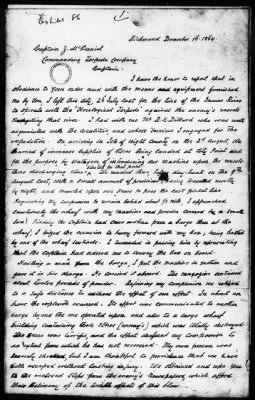 Exhibit 86
Richmond December 16. 1864.
Captain Z. McDaniel
Commanding Torpedo Company
Captain
I have the honor to report that in
obedience to your order and with the means and equipment furnished
me by you I left this City, 26 July last for the line of the James River
to operate with the "Horological Torpedo" against the enemy's vessels
navigating that river. I had with me Mr. R. K. Dillard who was well
acquainted with the localities and whose services I engaged for the
expedition. On arriving in Isle of Wight County on the 2nd of august
of immense supplies of stores being landed at City Point and
for the purpose by stratagem of introducing our machine upon the vessels
there discharging stores,
We reached there before daybreak on the 9th
august last, with a small amount of provisions having traveled mostly
by night, and crawled upon our knees to pass the east picket line
Requesting my companion to remain behind about ½ mile, I approached
cautiously the wharf with my machine and powder covered by a small
box. Finding the Captain had come ashore from a barge then at the
wharf, I seized the occasion to hurry forward with my box. being halted
by one of the wharf sentinels. I succeeded in passing him by representing
that the captain had ordered me to convey the box on board.
Hailing a man from the barge, I put the machine in motion and
gave it in his charge. He carried it aboard. The magazine contained
about twelve pounds of powder. Rejoining my companion we retired
to a safe distance to witness the effect of our effort. In about an
hour the explosion occurred. Its effect was communicated to another
barge beyond the one operated upon and also to a large wharf
building containing their stores (enemy's) which was totally destroyed.
The scene was terrific, and the effect deafened my companion to
an extent from which he has not recovered. My own person was
severely shocked, but I am thankful to providence that we have
both escaped without lasting injury. We obtained and refer you
to the enclosed slips from the enemy's newspapers, which afford
their testimony of the terrible effects of this blow.